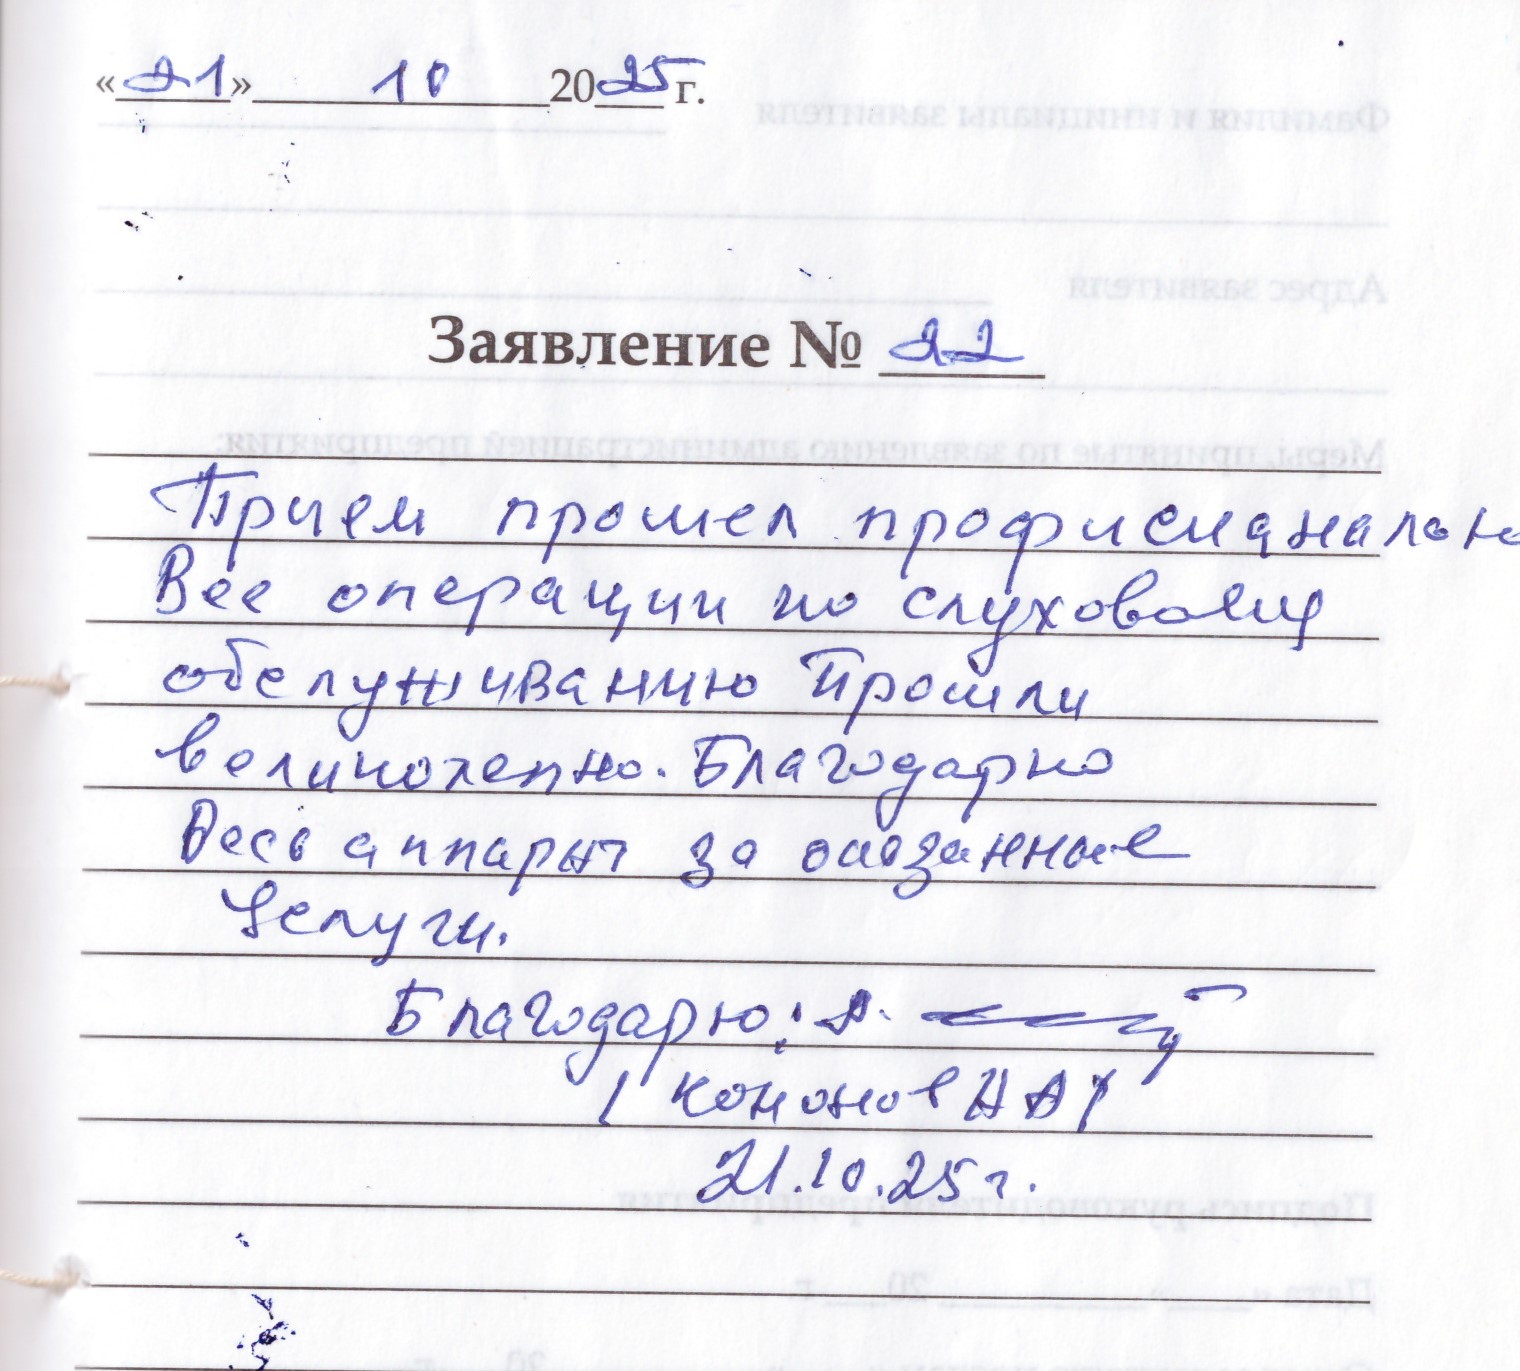 «21» 10 2025 г.
Заявление № 22
Прием прошел профисианально
Все операции по слуховому
обслуживанию Прошли
великолепно. Благодарю
Весь аппарат за оказанные
Услуги.
Благодарю:
(Кононов Н А)
21.10.25 г.